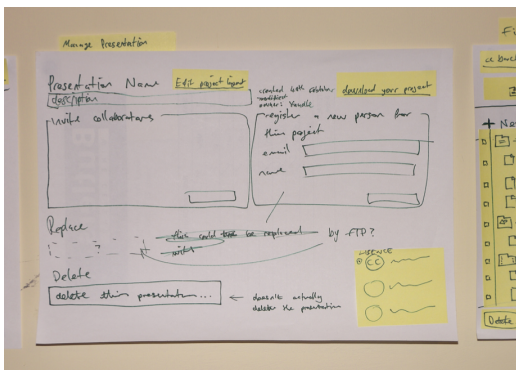 Manage Presentation
Presentation Name
Edit project layout
description
created 4th october
modified
owner:
download your project
invite collaborators
register a new person for
this project
email
name
Replace
this could be replaced
with
by FTP?
LISENCE
CC
Delete
delete this presentation...
← doesn't actually
delete the presentation
Fi
a back
+ Ne
Delete